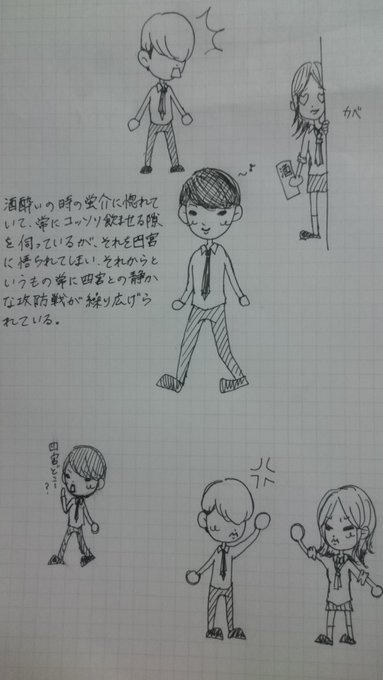 カベ
酒
酒酔いの時の蛍介に惚れて
いて、常にコッソリ飲ませる隙
を伺っているが、それを四宮
に悟られてしまい、それからと
いうもの常に四宮との静か
な攻防戦が繰り広げら
れている。
四宮どこー?